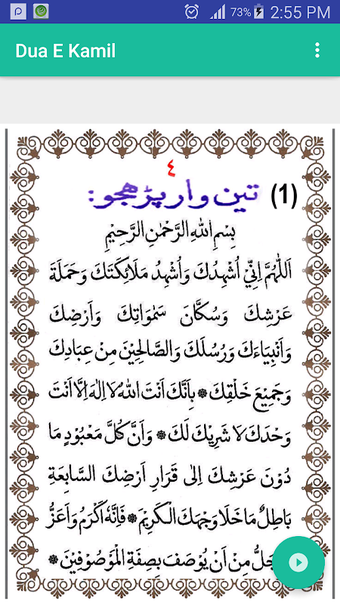 73% 2:55 PM
Dua E Kamil
٤
(1) تين وار پڙهجو:
بِسْمِ اللهِ الرَّحْمٰنِ الرَّحِيْمِ
اَللّٰهُمَّ اِنِّيْ اُشْهِدُكَ وَاُشْهِدُ مَلَائِكَتَكَ وَحَمَلَةَ
عَرْشِكَ وَسُكَّانَ سَمٰوَاتِكَ وَاَرْضِكَ
وَاَنْبِيَاءَكَ وَرُسُلَكَ وَالصَّالِحِيْنَ مِنْ عِبَادِكَ
وَجَمِيْعَ خَلْقِكَ ۞ بِاَنَّكَ اَنْتَ اللهُ لَا اِلٰهَ اِلَّا اَنْتَ
وَحْدَكَ لَا شَرِيْكَ لَكَ ۞ وَاَنَّ كُلَّ مَعْبُوْدٍ مَا
دُوْنَ عَرْشِكَ اِلٰى قَرَارِ اَرْضِكَ السَّابِعَةِ
بَاطِلٌ مَا خَلَا وَجْهَكَ الْكَرِيْمَ ۞ فَاِنَّهٗ اَكْرَمُ وَاَعَزُّ
مِنْ اَنْ يُوْصَفَ بِصِفَةِ الْمَوْصُوْفِيْنَ ۞